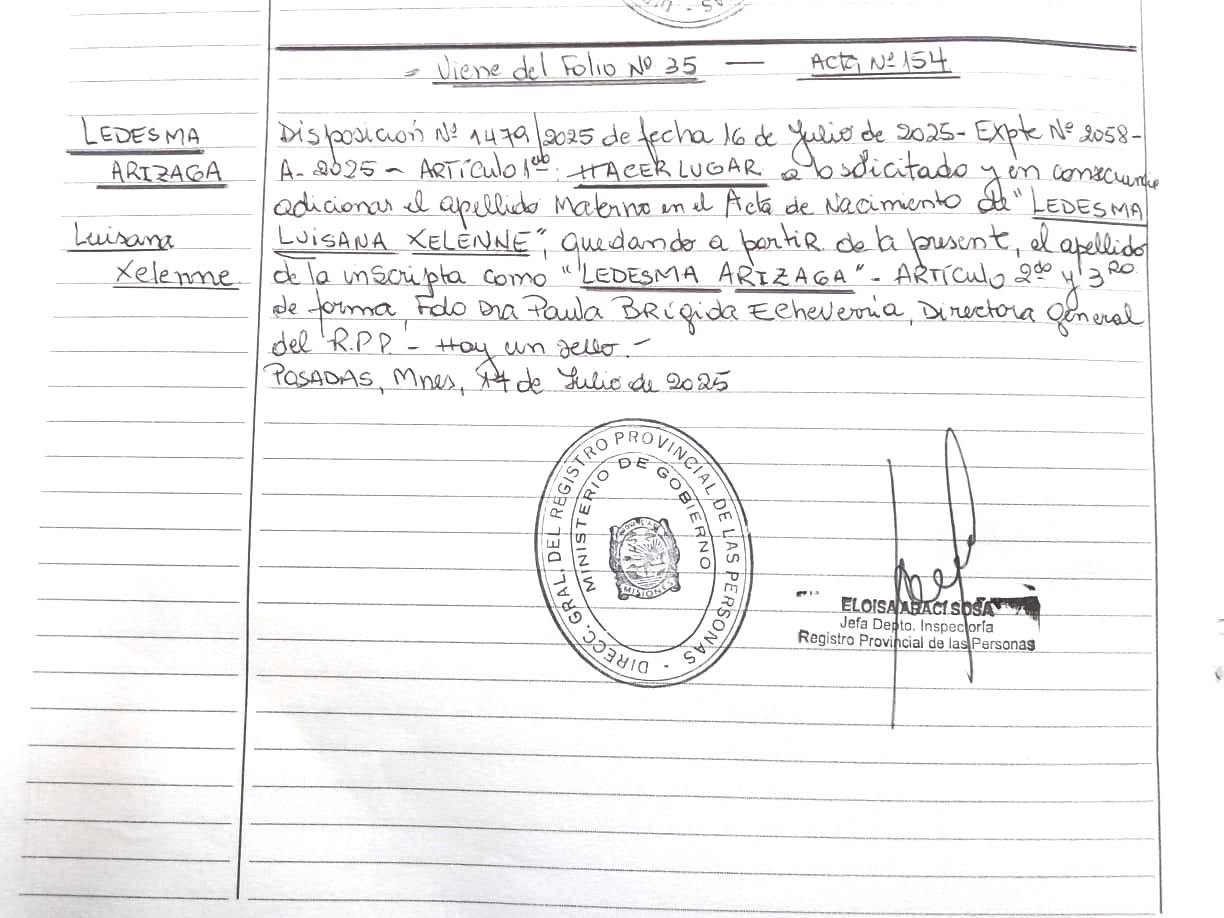 = Viene del Folio Nº 35 — Acta Nº 154
LEDESMA
ARIZAGA
Luisana
Xelenne
Disposición Nº 1479/2025 de fecha 16 de Julio de 2025- Expte Nº 2058-
A-2025- ARTÍCULO 1ero: HACER LUGAR a lo solicitado y en consecuencia
adicionar el apellido Materno en el Acta de Nacimiento de "LEDESMA
LUISANA XELENNE", quedando a partir de la presente, el apellido
de la inscripta como "LEDESMA ARIZAGA"- ARTÍCULO 2do y 3RO.
de forma, Fdo Dra Paula BRígida Echeverría, Directora General
del R.P.P. - Hay un sello.-
POSADAS, Mnes, de Julio de 2025
DIRECC. GRAL. DEL REGISTRO PROVINCIAL DE LAS PERSONAS -
MINISTERIO DE GOBIERNO
MISIONES
ELOISA ARACI SOSA
Jefa Depto. Inspectoría
Registro Provincial de las Personas